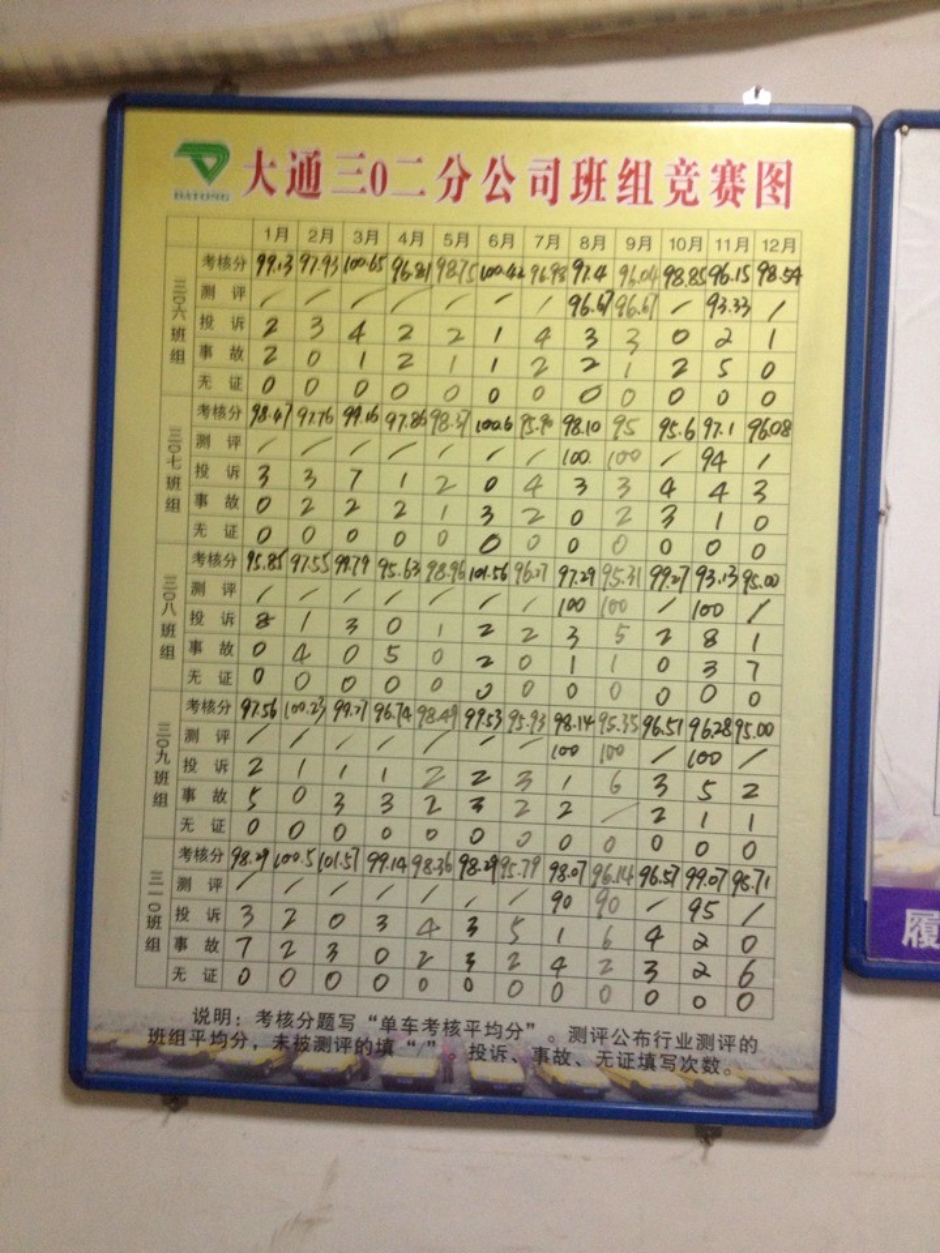 DATONG
大通三0二分公司班组竞赛图
1月 2月 3月 4月 5月 6月 7月 8月 9月 10月 11月 12月
三〇六班组
考核分 99.13 97.93 100.65 96.81 98.75 100.42 96.98 97.4 96.04 98.85 96.15 98.54
测评 / / / / / / / 96.67 96.67 / 93.33 /
投诉 2 3 4 2 2 1 4 3 3 0 2 1
事故 2 0 1 2 1 1 2 2 1 2 5 0
无证 0 0 0 0 0 0 0 0 0 0 0 0
三〇七班组
考核分 98.47 97.76 99.16 97.86 98.37 100.6 95.90 98.10 95 95.6 97.1 96.08
测评 / / / / / / / 100. 100 / 94 /
投诉 3 3 7 1 2 0 4 3 3 4 4 3
事故 0 2 2 2 1 3 2 0 2 3 1 0
无证 0 0 0 0 0 0 0 0 0 0 0 0
三〇八班组
考核分 95.85 97.55 99.79 95.63 98.96 101.56 96.27 97.29 95.31 99.27 93.13 95.00
测评 / / / / / / / 100 100 / 100 /
投诉 8 1 3 0 1 2 2 3 5 2 8 1
事故 0 4 0 5 0 2 0 1 1 0 3 7
无证 0 0 0 0 0 0 0 0 0 0 0 0
三〇九班组
考核分 97.56 100.23 99.77 96.74 98.49 99.53 95.93 98.14 95.35 96.51 96.28 95.00
测评 / / / / / / / 100 100 / 100 /
投诉 2 1 1 1 2 2 3 1 6 3 5 2
事故 5 0 3 3 2 3 2 2 / 2 1 1
无证 0 0 0 0 0 0 0 0 0 0 0 0
三一〇班组
考核分 98.29 100.5 101.57 99.14 98.36 98.29 95.79 98.07 96.14 96.57 99.07 95.71
测评 / / / / / / / 90 90 / 95 /
投诉 3 2 0 3 4 3 5 1 6 4 2 0
事故 7 2 3 0 2 3 2 4 2 3 2 6
无证 0 0 0 0 0 0 0 0 0 0 0 0
说明：考核分题写“单车考核平均分”。测评公布行业测评的
班组平均分，未被测评的填“ ”。投诉、事故、无证填写次数。
履